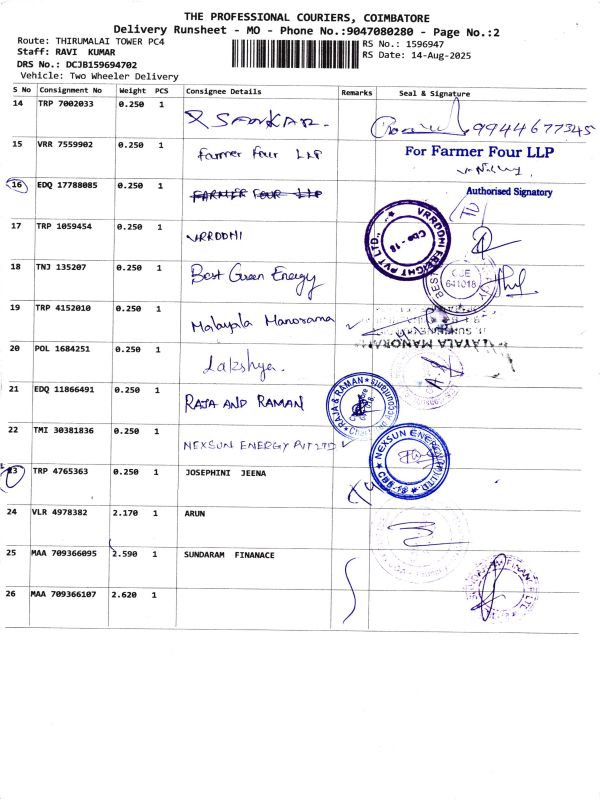 THE PROFESSIONAL COURIERS, COIMBATORE
Delivery Runsheet - MO - Phone No.:9047080280 - Page No.:2
Route: THIRUMALAI TOWER PC4
RS No.: 1596947
Staff: RAVI KUMAR
RS Date: 14-Aug-2025
DRS No.: DCJB159694702
Vehicle: Two Wheeler Delivery
S No Consignment No Weight PCS Consignee Details Remarks Seal & Signature
14 TRP 7002033 0.250 1 9944677345
15 VRR 7559902 0.250 1 Farmer Four LLP For Farmer Four LLP
16 EDQ 17788085 0.250 1 FARMER FOUR LLP Authorised Signatory
17 TRP 1059454 0.250 1 VRRDDHI VRRDDHI FREIGHT PVT LTD., Cbe - 18
18 TNJ 135207 0.250 1 Best Green Energy BEST CBE 641018
19 TRP 4152010 0.250 1 Malayala Manorama
MALAYALA MANORAMA
20 POL 1684251 0.250 1 Lakshya.
21 EDQ 11866491 0.250 1 RAJA AND RAMAN RAJA & RAMAN Chartered Accountants
22 TMI 30381836 0.250 1 NEXSUN ENERGY PVT LTD NEXSUN ENERGY (P) LTD CBE-18
23 TRP 4765363 0.250 1 JOSEPHINI JEENA
24 VLR 4978382 2.170 1 ARUN
25 MAA 709366095 2.590 1 SUNDARAM FINANACE
26 MAA 709366107 2.620 1